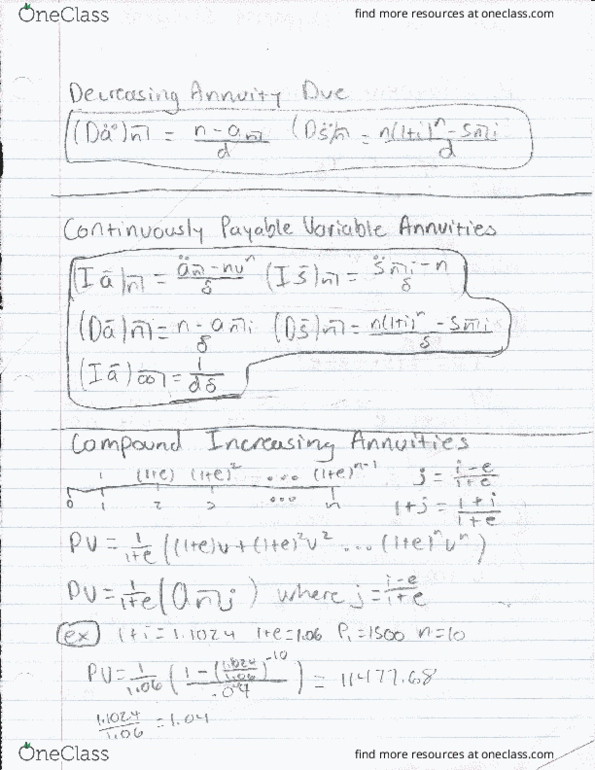 OneClass
find more resources at oneclass.com
Decreasing Annuity Due
(Dä)n̅| = n - an̅| / d (Ds̈)n̅| = n(1+i)^n - sn̅|i / d
Continuously Payable Variable Annuities
(Iā)n̅| = än̅| - nv^n / δ (Is̄)n̅| = s̈n̅|i - n / δ
(Dā)n̅| = n - an̅|i / δ (Ds̄)n̅| = n(1+i)^n - sn̅|i / δ
(Iā)∞̅| = 1 / dδ
Compound Increasing Annuities
1 (1+e) (1+e)^2 ... (1+e)^n-1 j = i-e / 1+e
0 1 2 3 ... n 1+j = 1+i / 1+e
PV = 1/1+e ((1+e)v + (1+e)^2v^2 ... (1+e)^n v^n)
PV = 1/1+e (an̅|j) where j = i-e / 1+e
ex 1+i = 1.1024 1+e = 1.06 P1 = 1500 n = 10
PV = 1/1.06 (1 - (1.1024/1.06)^-10 / .04) = 11477.68
1.1024/1.06 = 1.04
OneClass
find more resources at oneclass.com